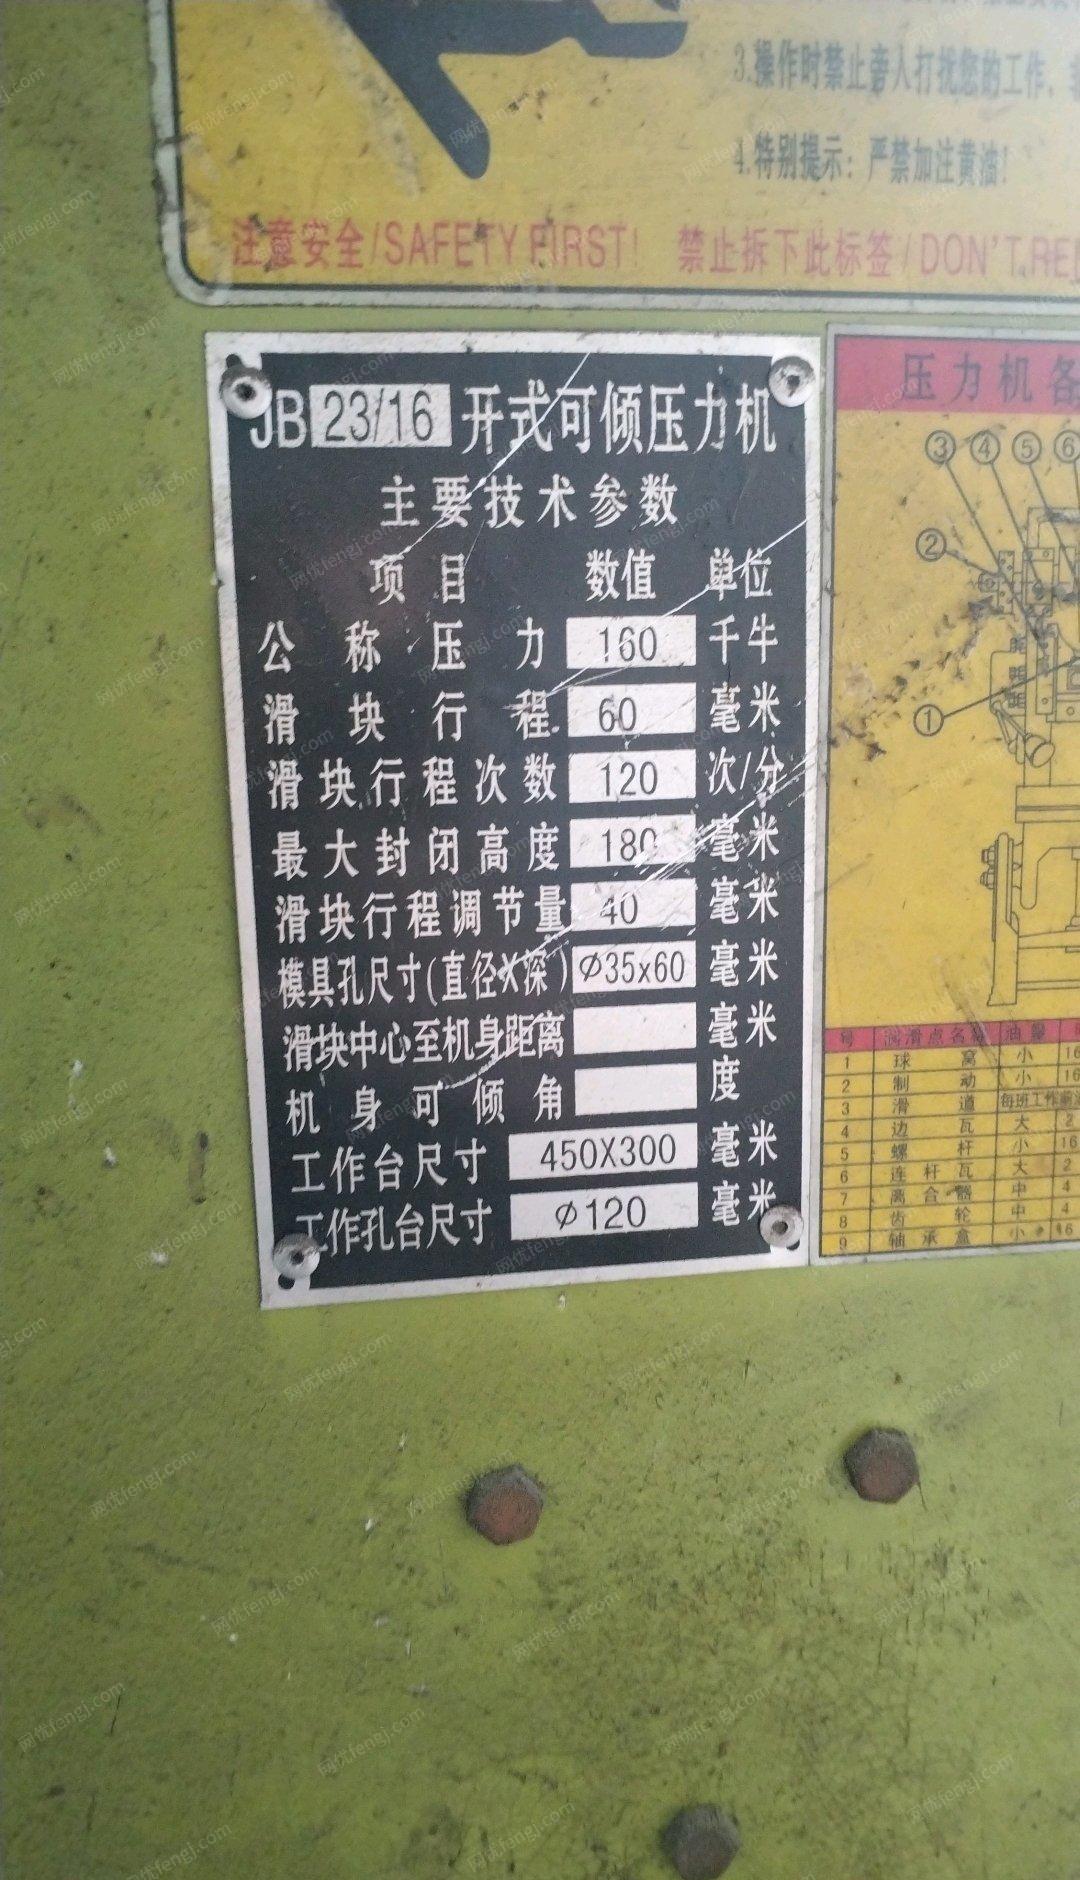 3.操作时禁止旁人打扰您的工作、
4.特别提示：严禁加注黄油！
注意安全/SAFETY FIRST! 禁止拆下此标签/DON'T.RE
JB 23/16 开式可倾压力机
主要技术参数
项目 数值 单位
公称压力 160 千牛
滑块行程 60 毫米
滑块行程次数 120 次/分
最大封闭高度 180 毫米
滑块行程调节量 40 毫米
模具孔尺寸(直径X深) Φ35x60 毫米
滑块中心至机身距离 毫米
机身可倾角 度
工作台尺寸 450X300 毫米
工作孔台尺寸 Φ120 毫米
压力机各
③ ④ ⑤ ⑥
②
①
号 润滑点名称 油量
1 球窝 小 16
2 制动 小 16
3 滑道 每班工作前
4 边瓦 大 2
5 螺杆 小 16
6 连杆瓦 大 2
7 离合器 中 4
8 齿轮 中 4
9 轴承盒 小 16
网优fengj.com